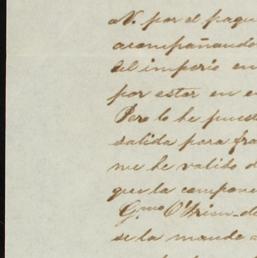 N. por el paque
acompañando
del imperio en
por estar en e
Pero lo he pues
salida para fra
me he valido d
que la compone
Gmo O'Brien de
se la mande a